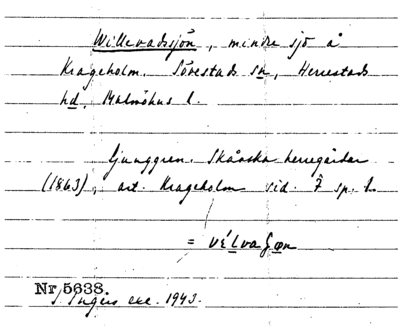 Willevadssjön, mindre sjö å
Krageholm. Sövestads sn, Herrestads
hd, Malmöhus l.
Ljunggren. Skånska herregårdar
(1863), art. Krageholm sid. 7 sp. 1.
=
Nr 5638.
Ingers exc. 1943.